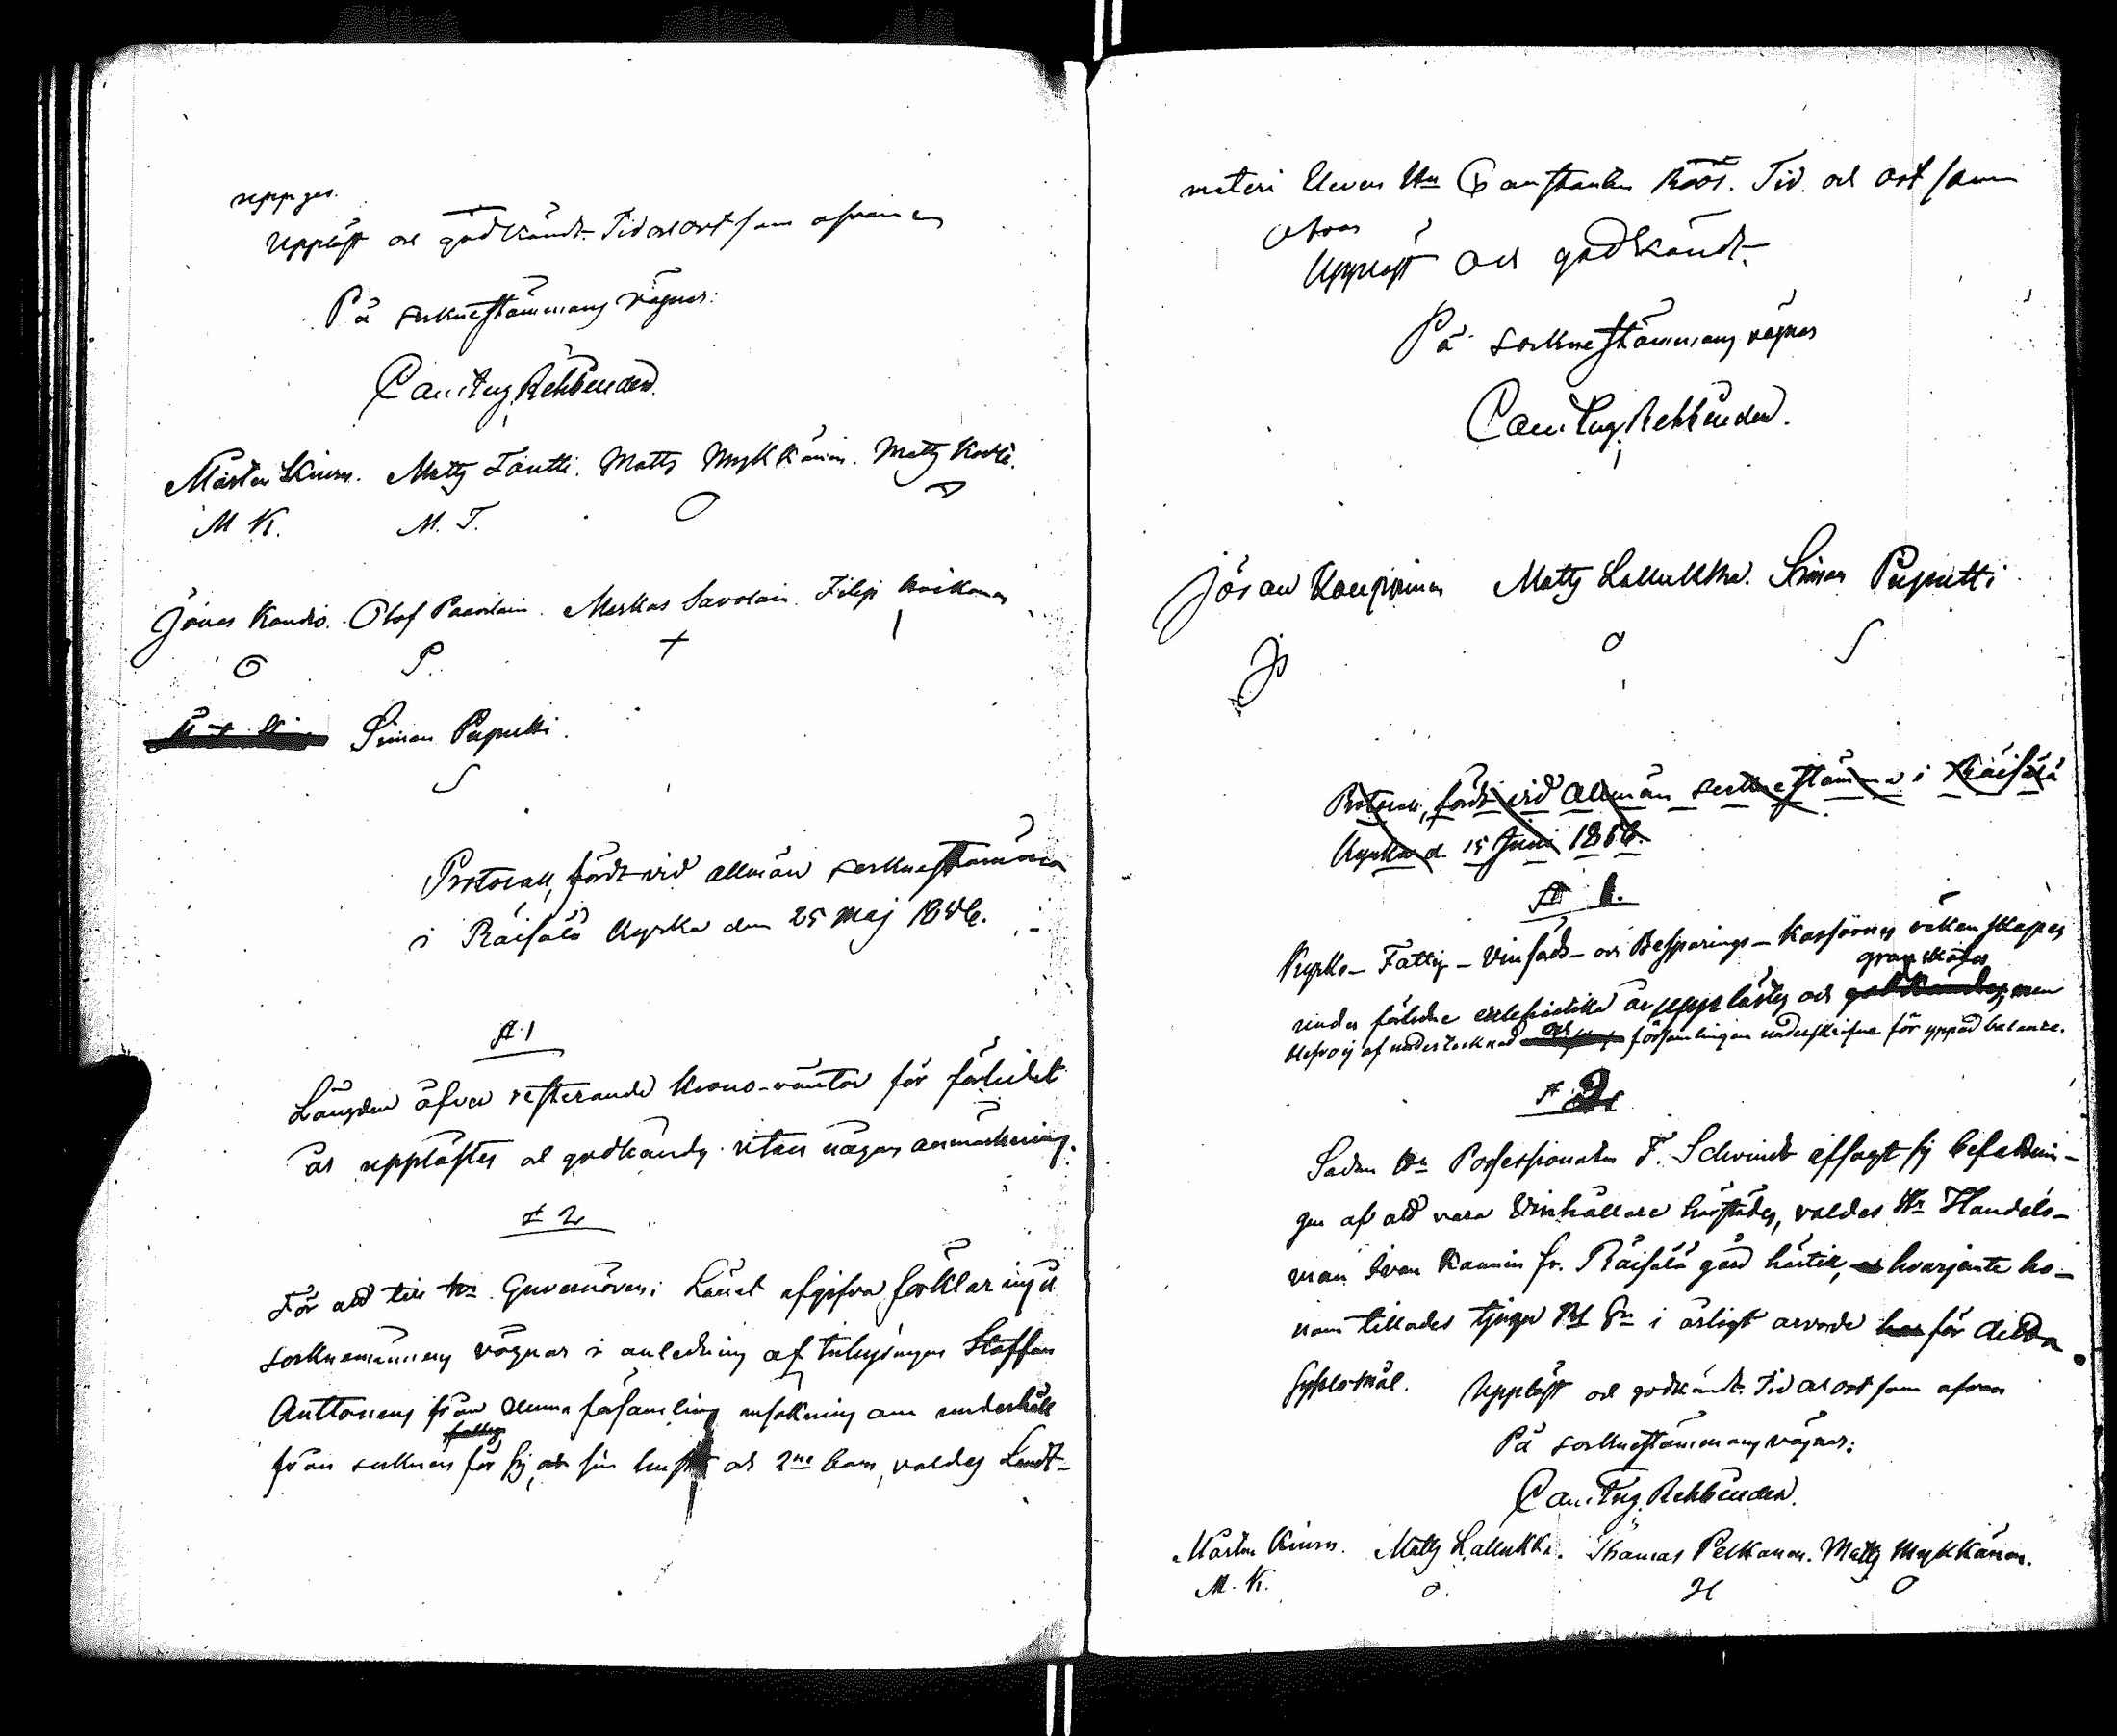 uppges.
Uppläst och godkändt. Tid och ort som ofvan
På socknestämmans vägnar:
Rehbinder.
Mårten Kiuru. Matts Täntti. Matts Mykkänen. Matts
M K. M. T.
Jonas Olof Paavolain. Markus Savolain. Filip
P. +
Simon Puputti.
S
Protocoll, fördt vid allmän socknestämma
i Räisälä Kyrka den 25 Maj 1846.
§ 1
Längden öfver resterande Krono-räntor för förledet
år upplästes och godkändes utan någon anmärkning.
§ 2
För att till Hr Guvernören i Länet afgifva förklaring å
sockne männens vägnar i anledning af inhysingen Staffan
Anttonens från denna församling ansökning om underhåll
från socknen för sig, och sin hustru och 2ne barn, valdes Landt-
mäteri Eleven Hr Constantin Roos. Tid och ort som
ofvan
Uppläst och godkändt.
På sockne stämmans vägnar
Rehbinder.
Jöran Kauppinen Matts Lallukka. Simon Puputti
S
Protocoll, fördt vid allmän sockne stämma i Räisälä
Kyrka d. 15 Juni 1846.
§ 1.
Kyrko- Fattig- Vinsäds- och Besparings- Kassornes räkenskaper
granskades
under förledne ecclesiastika år upplästes och men
blefvo ej af undertecknad församlingen underskrifne för yppad balance.
§ 2
Sedan Hr Possessionaten F. Schvindt afsagt sig befattnin-
gen af att vara Vinhållare härstädes, valdes Hr Handels-
man Ivan Kaanin fr. Räisälä gård härtill, hvarjemte ho-
nom tillades tjugo Rbl Sr i årligt arvode för detta
sysslomål. Uppläst och godkändt. Tid och ort som ofvan
På sockne stämmans vägnar:
Rehbinder.
Mårten Kiuru. Matts Lallukka. Thomas Pelkonen. Matts Mykkänen.
M. K.